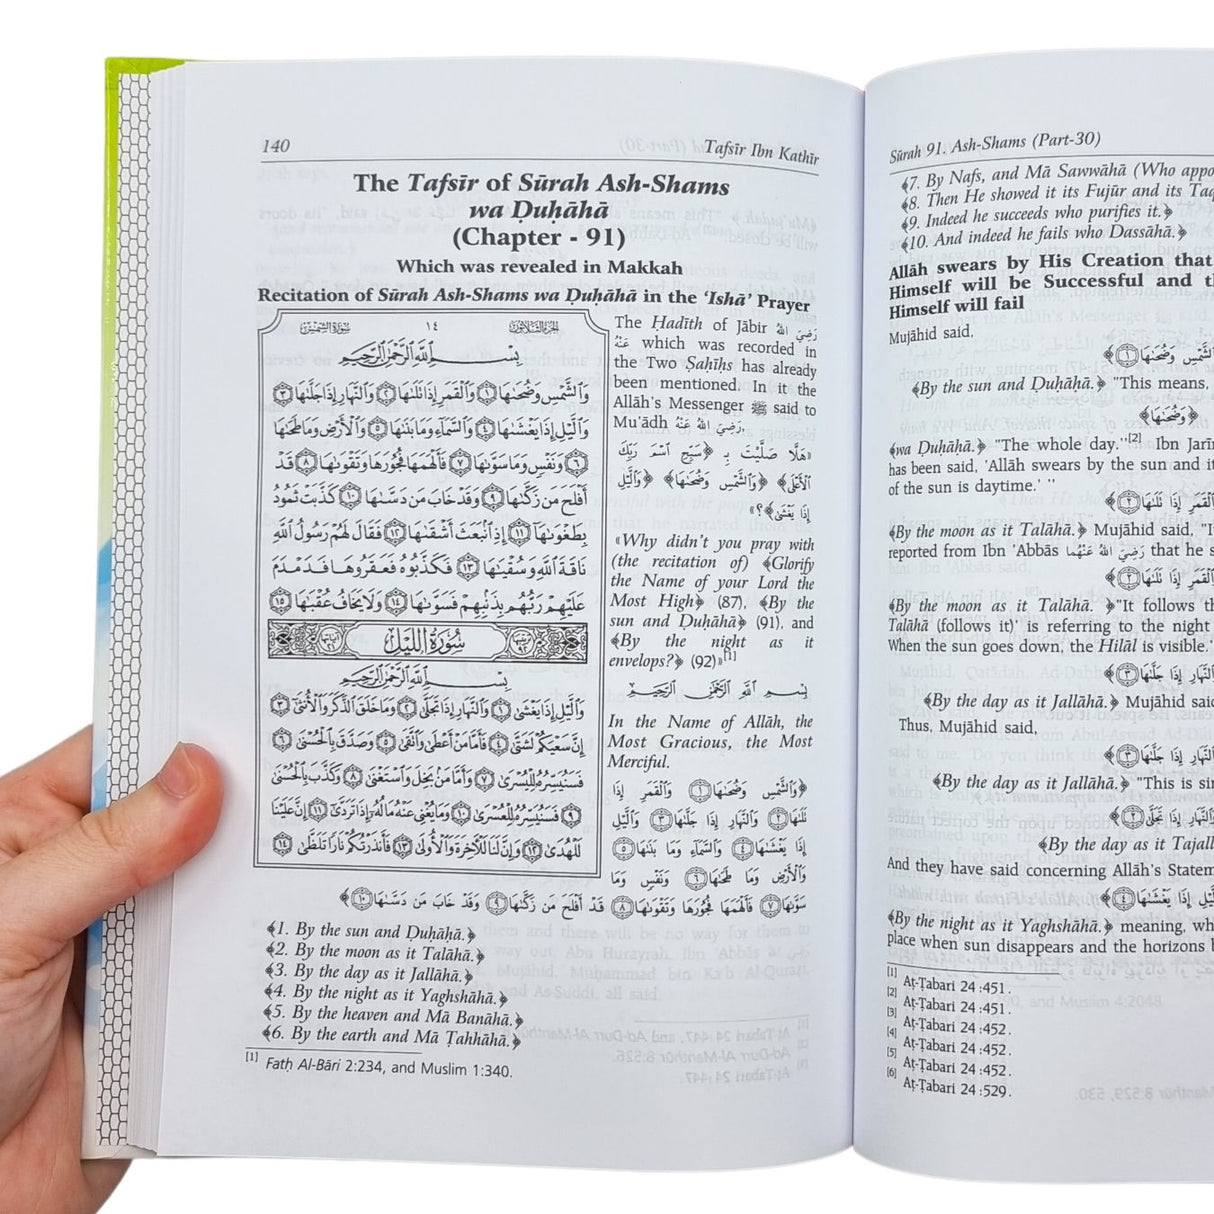 140 Tafsīr Ibn Kathīr
The Tafsīr of Sūrah Ash-Shams
wa Ḍuḥāhā
(Chapter - 91)
Which was revealed in Makkah
Recitation of Sūrah Ash-Shams wa Ḍuḥāhā in the ‘Ishā’ Prayer
سورة الشمس ١٤ الجزء الثلاثون
بِسْمِ ٱللَّهِ ٱلرَّحْمَٰنِ ٱلرَّحِيمِ
وَٱلشَّمْسِ وَضُحَىٰهَا ١ وَٱلْقَمَرِ إِذَا تَلَىٰهَا ٢ وَٱلنَّهَارِ إِذَا جَلَّىٰهَا ٣
وَٱلَّيْلِ إِذَا يَغْشَىٰهَا ٤ وَٱلسَّمَآءِ وَمَا بَنَىٰهَا ٥ وَٱلْأَرْضِ وَمَا طَحَىٰهَا
٦ وَنَفْسٍ وَمَا سَوَّىٰهَا ٧ فَأَلْهَمَهَا فُجُورَهَا وَتَقْوَىٰهَا ٨ قَدْ
أَفْلَحَ مَن زَكَّىٰهَا ٩ وَقَدْ خَابَ مَن دَسَّىٰهَا ١٠ كَذَّبَتْ ثَمُودُ
بِطَغْوَىٰهَآ ١١ إِذِ ٱنۢبَعَثَ أَشْقَىٰهَا ١٢ فَقَالَ لَهُمْ رَسُولُ ٱللَّهِ
نَاقَةَ ٱللَّهِ وَسُقْيَٰهَا ١٣ فَكَذَّبُوهُ فَعَقَرُوهَا فَدَمْدَمَ
عَلَيْهِمْ رَبُّهُم بِذَنۢبِهِمْ فَسَوَّىٰهَا ١٤ وَلَا يَخَافُ عُقْبَٰهَا ١٥
سُورَةُ اللَّيْلِ
بِسْمِ ٱللَّهِ ٱلرَّحْمَٰنِ ٱلرَّحِيمِ
وَٱلَّيْلِ إِذَا يَغْشَىٰ ١ وَٱلنَّهَارِ إِذَا تَجَلَّىٰ ٢ وَمَا خَلَقَ ٱلذَّكَرَ وَٱلْأُنثَىٰٓ ٣
إِنَّ سَعْيَكُمْ لَشَتَّىٰ ٤ فَأَمَّا مَنْ أَعْطَىٰ وَٱتَّقَىٰ ٥ وَصَدَّقَ بِٱلْحُسْنَىٰ ٦
فَسَنُيَسِّرُهُۥ لِلْيُسْرَىٰ ٧ وَأَمَّا مَنۢ بَخِلَ وَٱسْتَغْنَىٰ ٨ وَكَذَّبَ بِٱلْحُسْنَىٰ
٩ فَسَنُيَسِّرُهُۥ لِلْعُسْرَىٰ ١٠ وَمَا يُغْنِى عَنْهُ مَالُهُۥٓ إِذَا تَرَدَّىٰٓ ١١ إِنَّ عَلَيْنَا
لَلْهُدَىٰ ١٢ وَإِنَّ لَنَا لَلْآخِرَةَ وَٱلْأُولَىٰ ١٣ فَأَنذَرْتُكُمْ نَارًا تَلَظَّىٰ ١٤
The Ḥadīth of Jābir رَضِيَ اللهُ
عَنْهُ which was recorded in
the Two Ṣaḥīḥs has already
been mentioned. In it the
Allāh's Messenger ﷺ said to
Mu'ādh رَضِيَ اللهُ عَنْهُ,
«هَلَّا صَلَّيْتَ بِـ ﴿سَبِّحِ اسْمَ رَبِّكَ
الْأَعْلَى﴾ ﴿وَالشَّمْسِ وَضُحَىٰهَا﴾ ﴿وَالَّيْلِ
إِذَا يَغْشَىٰ﴾؟»
«Why didn't you pray with
(the recitation of) ﴾Glorify
the Name of your Lord the
Most High﴿ (87), ﴾By the
sun and Ḍuḥāhā﴿ (91), and
﴾By the night as it
envelops?﴿ (92)»[1]
بِسْمِ اللَّهِ الرَّحْمَٰنِ الرَّحِيمِ
In the Name of Allāh, the
Most Gracious, the Most
Merciful.
﴿وَالشَّمْسِ وَضُحَىٰهَا ١ وَالْقَمَرِ إِذَا
تَلَىٰهَا ٢ وَالنَّهَارِ إِذَا جَلَّىٰهَا ٣ وَالَّيْلِ
إِذَا يَغْشَىٰهَا ٤ وَالسَّمَآءِ وَمَا بَنَىٰهَا ٥
وَالْأَرْضِ وَمَا طَحَىٰهَا ٦ وَنَفْسٍ وَمَا
سَوَّىٰهَا ٧ فَأَلْهَمَهَا فُجُورَهَا وَتَقْوَىٰهَا ٨ قَدْ أَفْلَحَ مَن زَكَّىٰهَا ٩ وَقَدْ خَابَ مَن دَسَّىٰهَا ١٠﴾
﴾1. By the sun and Ḍuḥāhā.﴿
﴾2. By the moon as it Talāhā.﴿
﴾3. By the day as it Jallāhā.﴿
﴾4. By the night as it Yaghshāhā.﴿
﴾5. By the heaven and Mā Banāhā.﴿
﴾6. By the earth and Mā Ṭahhāhā.﴿
[1] Fatḥ Al-Bāri 2:234, and Muslim 1:340.
Sūrah 91. Ash-Shams (Part-30)
﴾7. By Nafs, and Mā Sawwāhā (Who appo
﴾8. Then He showed it its Fujūr and its Taq
﴾9. Indeed he succeeds who purifies it.﴿
﴾10. And indeed he fails who Dassāhā.﴿
Allāh swears by His Creation that
Himself will be Successful and th
Himself will fail
Mujāhid said,
لشَّمْسِ وَضُحَىٰهَا ١﴾
﴾By the sun and Ḍuḥāhā.﴿ "This means,
﴿وَضُحَىٰهَا﴾
﴾wa Ḍuḥāhā.﴿ "The whole day."[2] Ibn Jarīr
has been said, 'Allāh swears by the sun and it
of the sun is daytime.' "
الْقَمَرِ إِذَا تَلَىٰهَا ٢﴾
﴾By the moon as it Talāhā.﴿ Mujāhid said, "It
reported from Ibn 'Abbās رَضِيَ اللهُ عَنْهُمَا that he s
الْقَمَرِ إِذَا تَلَىٰهَا ٢﴾
﴾By the moon as it Talāhā. ﴿"It follows th
Talāhā (follows it)' is referring to the night
When the sun goes down, the Hilāl is visible.'
النَّهَارِ إِذَا جَلَّىٰهَا ٣﴾
﴾By the day as it Jallāhā.﴿ Mujāhid said
Thus, Mujāhid said,
النَّهَارِ إِذَا جَلَّىٰهَا ٣﴾
﴾By the day as it Jallāhā.﴿ "This is sin
لنَّهَارِ إِذَا تَجَلَّىٰ ٢﴾
﴾By the day as it Tajall
And they have said concerning Allāh's Statem
لَّيْلِ إِذَا يَغْشَىٰهَا ٤﴾
﴾By the night as it Yaghshāhā.﴿ meaning, wh
place when sun disappears and the horizons b
[1] Aṭ-Ṭabari 24 :451.
[2] Aṭ-Ṭabari 24 :451.
[3] Aṭ-Ṭabari 24 :452.
[4] Aṭ-Ṭabari 24 :452.
[5] Aṭ-Ṭabari 24 :452.
[6] Aṭ-Ṭabari 24 :529.